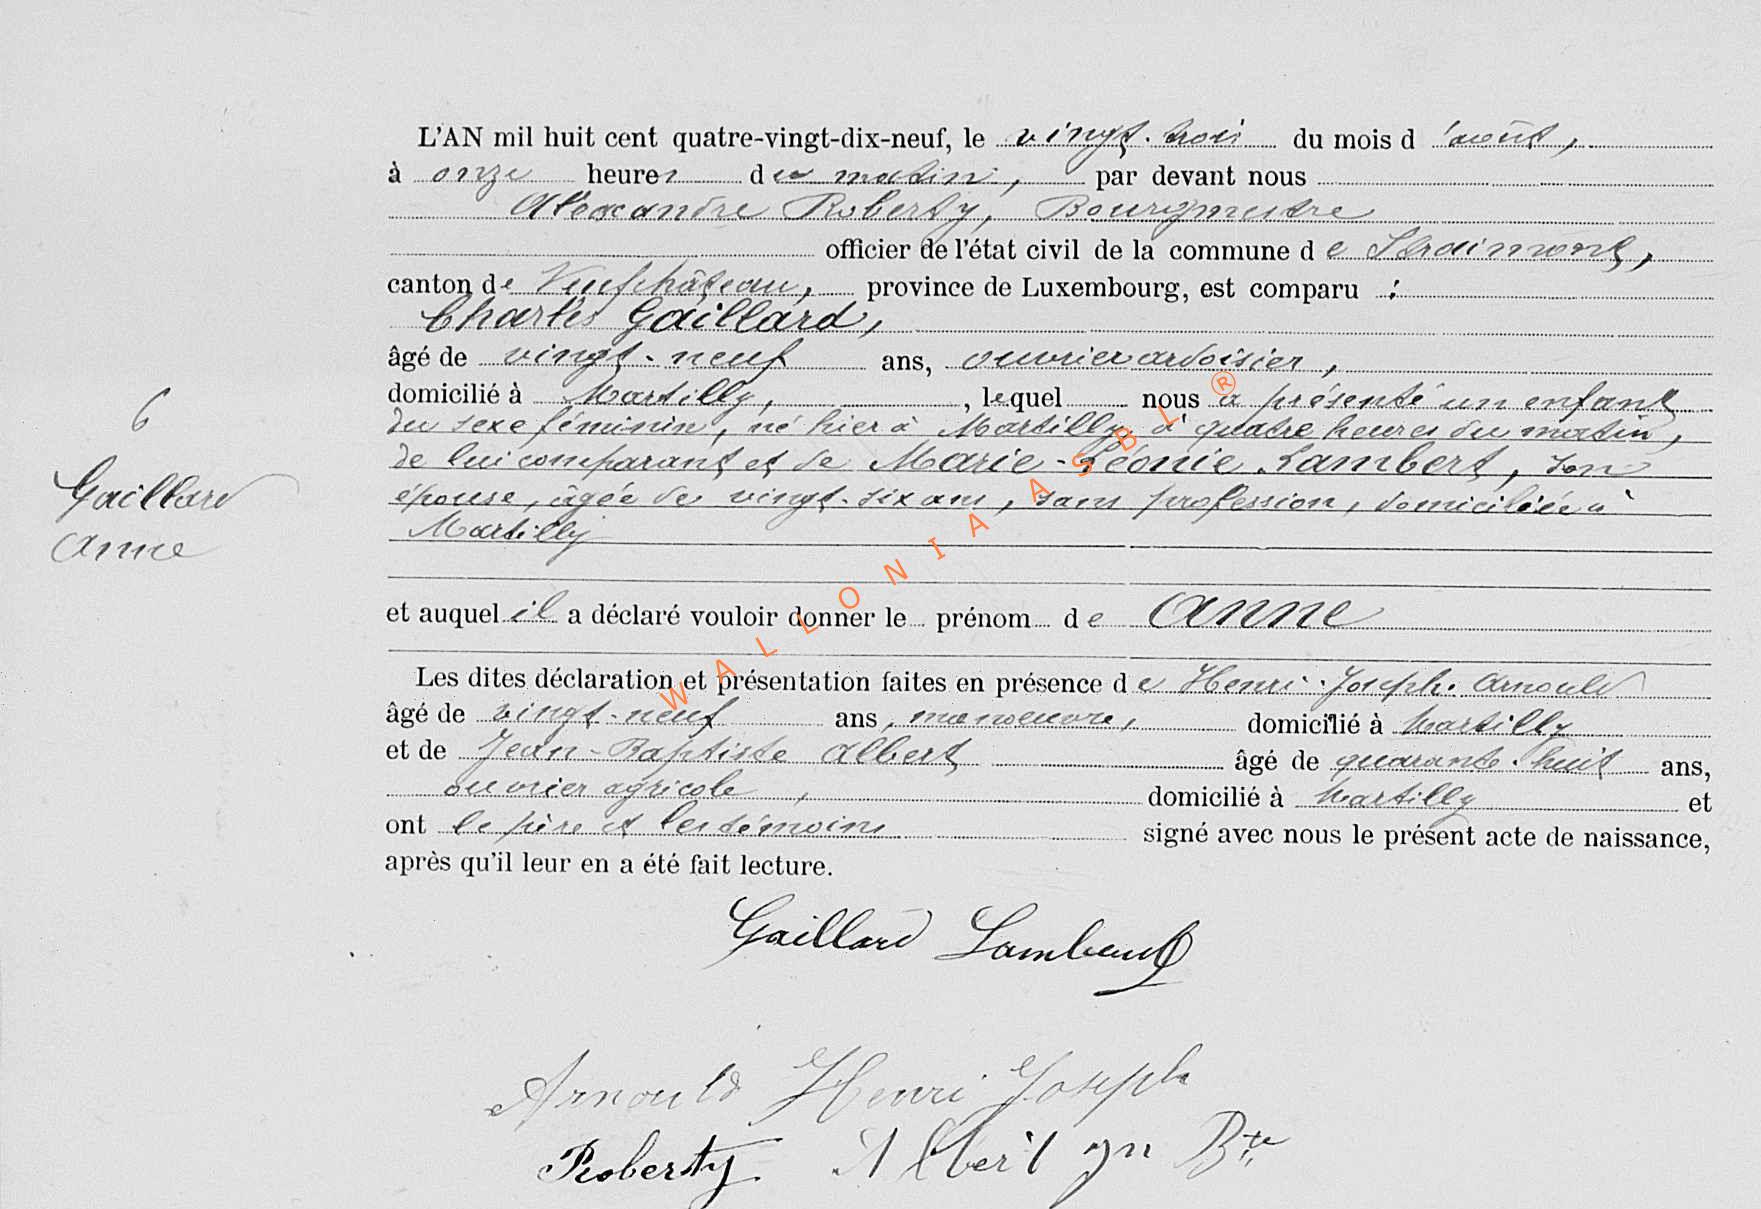 L'AN mil huit cent quatre-vingt-dix-neuf, le vingt-trois du mois d'août,
à onze heures du matin, par devant nous
Alexandre Roberty, Bourgmestre
officier de l'état civil de la commune de Straimont,
canton de Neufchâteau, province de Luxembourg, est comparu :
Charles Gaillard,
âgé de vingt-neuf ans, ouvrier ardoisier,
domicilié à Martilly, , lequel nous a présenté un enfant
du sexe féminin, né hier à Martilly, à quatre heures du matin,
de lui comparant et de Marie-Léonie Lambert, son
épouse, âgée de vingt-six ans, sans profession, domiciliée à
Martilly
6
Gaillard
Anne
et auquel il a déclaré vouloir donner le prénom de Anne
Les dites déclaration et présentation faites en présence de Henri-Joseph Arnould
âgé de vingt-neuf ans, manoeuvre, domicilié à Martilly
et de Jean-Baptiste Albert âgé de quarante-huit ans,
ouvrier agricole, domicilié à Martilly et
ont le père et les témoins signé avec nous le présent acte de naissance,
après qu'il leur en a été fait lecture.
Gaillard Lambert
Arnould Henri Joseph
Roberty Albert Jn Bte
WALLONIA ASBL ®